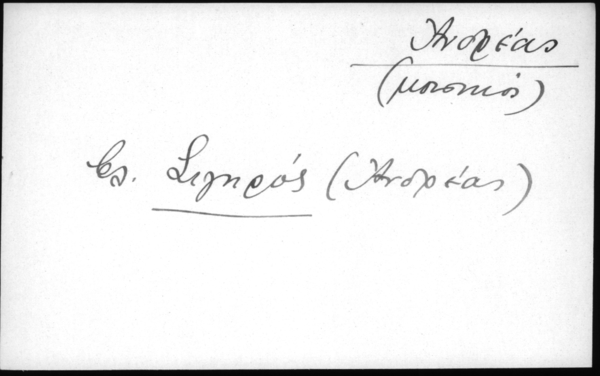 Ἀνδρέας
(μουσικός)
βλ. Σιγηρός (Ἀνδρέας)